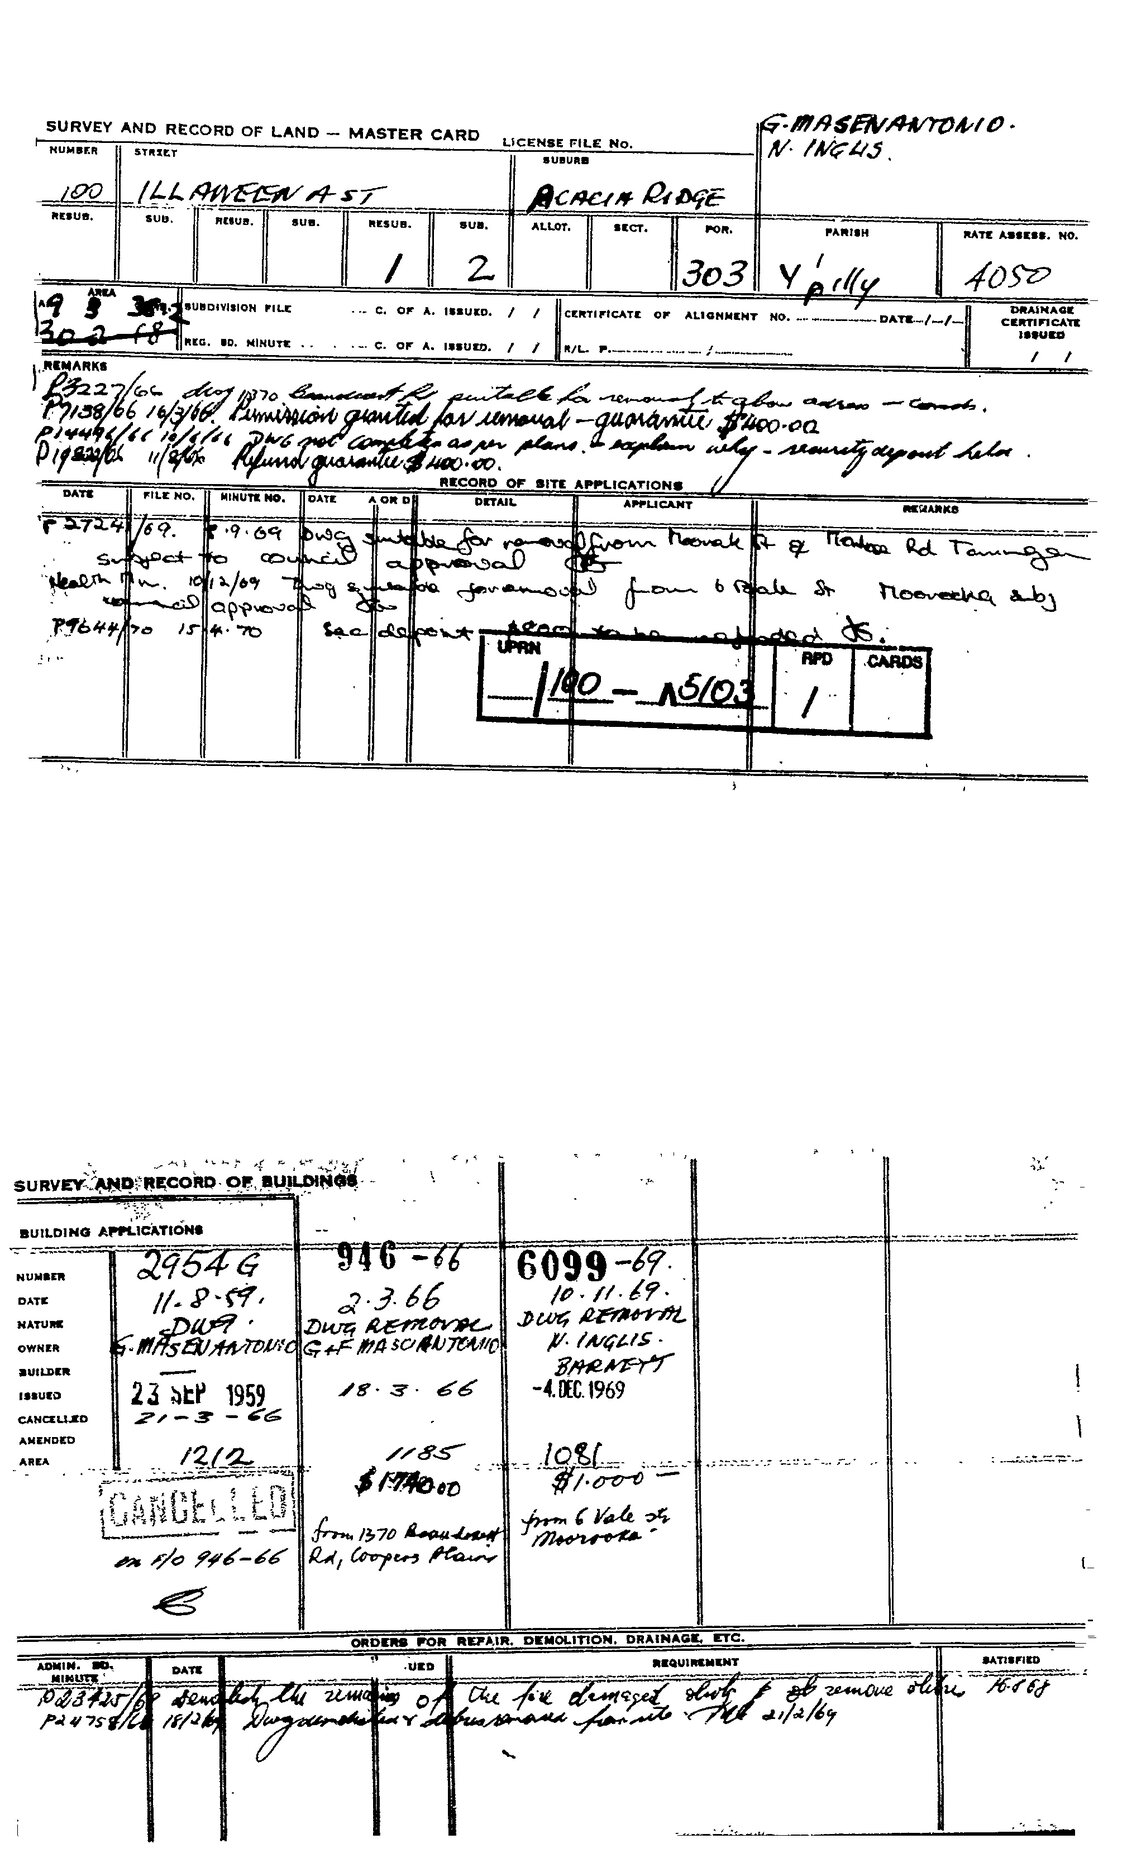 SURVEY AND RECORD OF LAND — MASTER CARD
LICENSE FILE No.
G. MASENANTONIO.
N. INGLIS.
NUMBER STREET SUBURB
100 ILLAWEENA ST ACACIA RIDGE
RESUB. SUB. RESUB. SUB. RESUB. SUB. ALLOT. SECT. POR. PARISH RATE ASSESS. NO.
1 2 303 Y'pilly 4050
AREA
A 9 3
30 2 18
SUBDIVISION FILE C. OF A. ISSUED. / / CERTIFICATE OF ALIGNMENT NO. DATE / / DRAINAGE CERTIFICATE ISSUED
REG. BD. MINUTE C. OF A. ISSUED. / / R/L. P. / / /
REMARKS
P3227/66 dwg 1370 Beaudesert Rd suitable for removal to above address — conds.
P7138/66 16/3/66. Permission granted for removal — guarantee $400.00
P14496/66 10/6/66 DWG not completed as per plans. — explain why — security deposit held.
11/8/66 Refund guarantee $400.00.
RECORD OF SITE APPLICATIONS
DATE FILE NO. MINUTE NO. DATE A OR D DETAIL APPLICANT REMARKS
P2724/69. 9.69 Dwg suitable for removal from St & Rd
subject to council approval
Health Mn. 10/12/69 Dwg for removal from 6 Vale St Moorooka subj
council approval
P9644/70 15.4.70 Sec deposit to be refunded
UPRN RPD CARDS
/100 — 5/03 1
SURVEY AND RECORD OF BUILDINGS
BUILDING APPLICATIONS
NUMBER 2954G 946 -66 6099 -69.
DATE 11.8.59. 2.3.66 10.11.69.
NATURE DWG. DWG REMOVAL DWG REMOVAL
OWNER G. MASENANTONIO G+F MASCIANTONIO N. INGLIS.
BUILDER — BARNETT
ISSUED 23 SEP 1959 18.3.66 -4. DEC. 1969
CANCELLED 21-3-66
AMENDED
AREA 1212 1185 1081
$1740.00 $1.000 —
CANCELLED
from 1370 Beaudesert Rd, Coopers Plains
from 6 Vale St Moorooka
on F/O 946-66
ORDERS FOR REPAIR, DEMOLITION, DRAINAGE, ETC.
ADMIN. BD. MINUTE DATE UED REQUIREMENT SATISFIED
Demolish the remains of the fire damaged & remove 16868
18/2/69 Dwg demolished & debris removed from site 21/2/69